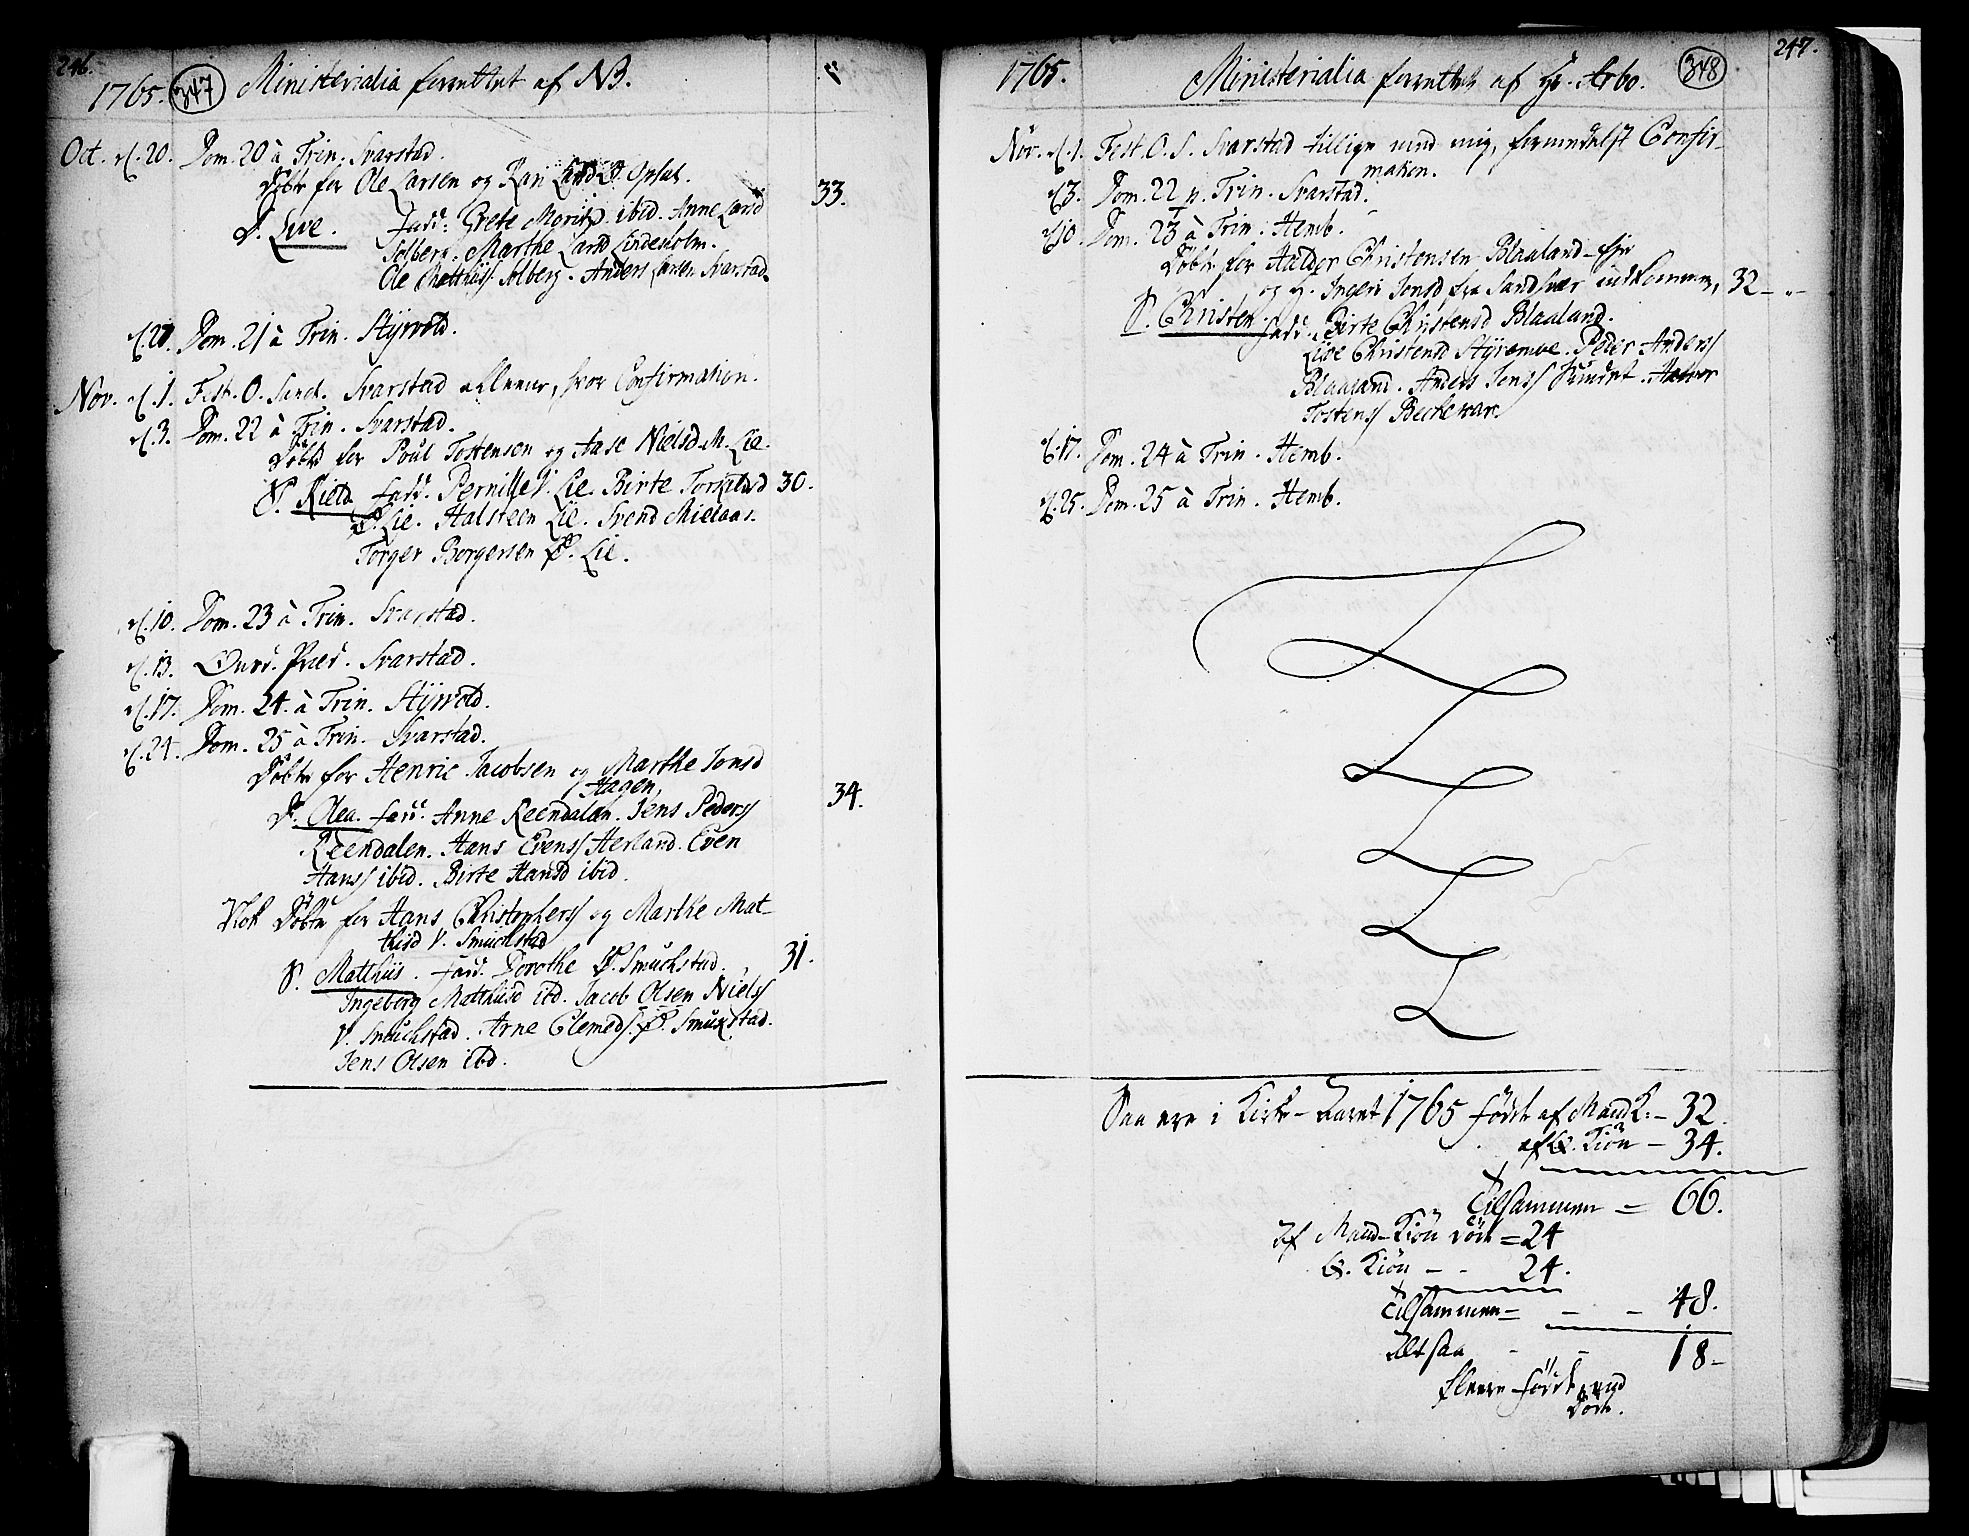 246.
1765. 347 Ministerialia forrettet af NB.
Oct. d. 20. Dom. 20 à Trin. Svarstad.
Döbt for Ole Larsen og Kari Opsal.
D. Live. fadd: Grete Moritz. ibid. Anne Larsd 33.
Solberg. Marthe Larsd Lindesholm.
Ole Matthiss Solberg. Anders Larsen Svarstad.
d. 27. Dom. 21 à Trin. Styrvold.
Nov. d. 1. Fest. O. Sanct. Svarstad allene, hvor Confirmation.
d. 3. Dom. 22 à Trin. Svarstad.
Döbt for Poul Tostensen og Aase Nielsd. M. Lie.
S. Niels fadd. Pernille V. Lie. Birte Torkilsd 30.
Ø. Lie. Halsteen Lie. Svend Mielaas.
Torger Borgersen Ø. Lie.
d. 10. Dom. 23 à Trin. Svarstad.
d. 13. Onsd. Præd. Svarstad.
d. 17. Dom. 24. à Trin. Styrvold.
d. 24. Dom. 25 à Trin. Svarstad.
Döbt for Henric Jacobsen og Marthe Jonsd
Hagen,
D. Olea. fadd. Anne Reendalen. Jens Peders 34.
Reendalen. Hans Evenss Herland. Even
Hanss ibid. Birte Hansd ibid.
Nok Döbt for Hans Christophers og Marthe Mat-
thisd V. Smuchstad
S. Matthiis. fadd. Dorothe Ø. Smuchstad. 31.
Ingeborg Matthisd ibd. Jacob Olsen Niels
V. Smuchstad. Arne Clemeds. Ø. Smuxstad.
Jens Olsen ibd.
247.
1765. Ministerialia forrettet af Hr. Arbo. 348
Nov. d. 1. Fest. O. S. Svarstad tillige med mig, formedelst Confir-
mation.
d. 3. Dom. 22 p. Trin. Svarstad.
d. 10. Dom. 23 à Trin. Hemb.
Döbt for Halder Christensen Blaaland-Eje
og H. Ingeri Jonsd fra Sandsvær indkommen, 32 - " -
S. Christen. fadd. Birte Christensd Blaaland.
Live Christensd Styremoe. Peder Anders
Blaaland. Anders Jenss Sundet. Halvor
Tostens Beckevar.
d. 17. Dom. 24 à Trin. Hemb.
d. 25. Dom. 25 à Trin. Hemb.
Saa ere i Kirke-Aaret 1765 födte af Mand K. - 32.
af Q. Kiön - 34.
Tilsammen = 66.
Af Mand-Kiön döde = 24
Q. Kiön - - 24.
Tilsammen = - - 48.
Altsaa - - 18 -
fleere födte end
döde.